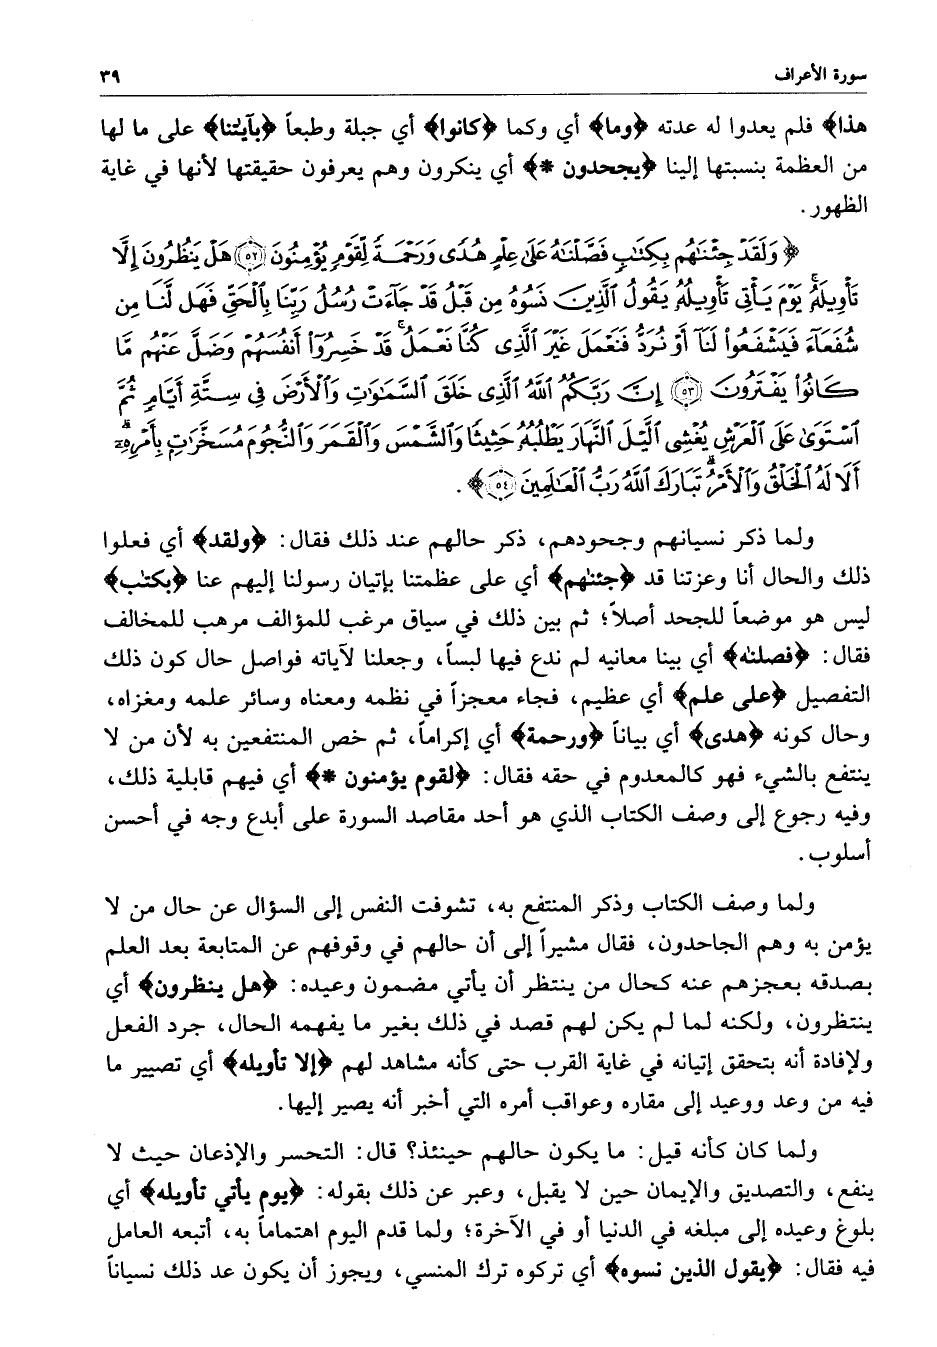 سورة الأعراف ٣٩
هذا﴾ فلم يعدوا له عدته ﴿وما﴾ أي وكما ﴿كانوا﴾ أي جبلة وطبعاً ﴿بآيٰتنا﴾ على ما لها
من العظمة بنسبتها إلينا ﴿يجحدون *﴾ أي ينكرون وهم يعرفون حقيقتها لأنها في غاية
الظهور.
﴿وَلَقَدْ جِئْنَٰهُم بِكِتَٰبٍ فَصَّلْنَٰهُ عَلَىٰ عِلْمٍ هُدًى وَرَحْمَةً لِّقَوْمٍ يُؤْمِنُونَ ﴿٥٢﴾ هَلْ يَنظُرُونَ إِلَّا
تَأْوِيلَهُۥ يَوْمَ يَأْتِى تَأْوِيلُهُۥ يَقُولُ ٱلَّذِينَ نَسُوهُ مِن قَبْلُ قَدْ جَآءَتْ رُسُلُ رَبِّنَا بِٱلْحَقِّ فَهَل لَّنَا مِن
شُفَعَآءَ فَيَشْفَعُوا۟ لَنَآ أَوْ نُرَدُّ فَنَعْمَلَ غَيْرَ ٱلَّذِى كُنَّا نَعْمَلُ ۚ قَدْ خَسِرُوٓا۟ أَنفُسَهُمْ وَضَلَّ عَنْهُم مَّا
كَانُوا۟ يَفْتَرُونَ ﴿٥٣﴾ إِنَّ رَبَّكُمُ ٱللَّهُ ٱلَّذِى خَلَقَ ٱلسَّمَٰوَٰتِ وَٱلْأَرْضَ فِى سِتَّةِ أَيَّامٍ ثُمَّ
ٱسْتَوَىٰ عَلَى ٱلْعَرْشِ يُغْشِى ٱلَّيْلَ ٱلنَّهَارَ يَطْلُبُهُۥ حَثِيثًا وَٱلشَّمْسَ وَٱلْقَمَرَ وَٱلنُّجُومَ مُسَخَّرَٰتٍۭ بِأَمْرِهِۦٓ ۗ
أَلَا لَهُ ٱلْخَلْقُ وَٱلْأَمْرُ ۗ تَبَارَكَ ٱللَّهُ رَبُّ ٱلْعَٰلَمِينَ ﴿٥٤﴾﴾.
ولما ذكر نسيانهم وجحودهم، ذكر حالهم عند ذلك فقال: ﴿ولقد﴾ أي فعلوا
ذلك والحال أنا وعزتنا قد ﴿جئنٰهم﴾ أي على عظمتنا بإتيان رسولنا إليهم عنا ﴿بكتٰب﴾
ليس هو موضعاً للجحد أصلاً؛ ثم بين ذلك في سياق مرغب للمؤالف مرهب للمخالف
فقال: ﴿فصلنٰه﴾ أي بينا معانيه لم ندع فيها لبساً، وجعلنا لآياته فواصل حال كون ذلك
التفصيل ﴿على علم﴾ أي عظيم، فجاء معجزاً في نظمه ومعناه وسائر علمه ومغزاه،
وحال كونه ﴿هدى﴾ أي بياناً ﴿ورحمة﴾ أي إكراماً، ثم خص المنتفعين به لأن من لا
ينتفع بالشيء فهو كالمعدوم في حقه فقال: ﴿لقوم يؤمنون *﴾ أي فيهم قابلية ذلك،
وفيه رجوع إلى وصف الكتاب الذي هو أحد مقاصد السورة على أبدع وجه في أحسن
أسلوب.
ولما وصف الكتاب وذكر المنتفع به، تشوفت النفس إلى السؤال عن حال من لا
يؤمن به وهم الجاحدون، فقال مشيراً إلى أن حالهم في وقوفهم عن المتابعة بعد العلم
بصدقه بعجزهم عنه كحال من ينتظر أن يأتي مضمون وعيده: ﴿هل ينظرون﴾ أي
ينتظرون، ولكنه لما لم يكن لهم قصد في ذلك بغير ما يفهمه الحال، جرد الفعل
ولإفادة أنه بتحقق إتيانه في غاية القرب حتى كأنه مشاهد لهم ﴿إلا تأويله﴾ أي تصيير ما
فيه من وعد ووعيد إلى مقاره وعواقب أمره التي أخبر أنه يصير إليها.
ولما كان كأنه قيل: ما يكون حالهم حينئذ؟ قال: التحسر والإذعان حيث لا
ينفع، والتصديق والإيمان حين لا يقبل، وعبر عن ذلك بقوله: ﴿يوم يأتي تأويله﴾ أي
بلوغ وعيده إلى مبلغه في الدنيا أو في الآخرة؛ ولما قدم اليوم اهتماماً به، أتبعه العامل
فيه فقال: ﴿يقول الذين نسوه﴾ أي تركوه ترك المنسي، ويجوز أن يكون عد ذلك نسياناً